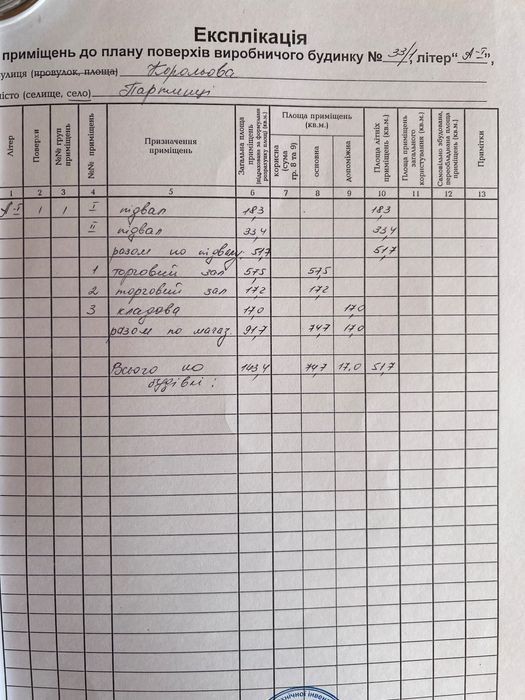 Експлікація
приміщень до плану поверхів виробничого будинку № 33/1, літер "А-I",
улиця (провулок, площа) Корольова
істо (селище, село) Партизанці
Літер
Поверхи
№№ груп приміщень
№№ приміщень
Призначення приміщень
Загальна площа приміщень
Площа приміщень (кв.м.)
корисна (сума гр. 8 та 9)
основна
допоміжна
Площа літніх приміщень (кв.м.)
Площа приміщень загального користування (кв.м.)
Самовільно збудована, переобладнана площа приміщень (кв.м.)
Примітки
1 2 3 4 5 6 7 8 9 10 11 12 13
А-I 1 1 I підвал 18,3 18,3
II підвал 33,4 33,4
разом по підвалу 51,7 51,7
1 торговий зал 57,5 57,5
2 торговий зал 17,2 17,2
3 кладова 17,0 17,0
разом по магаз. 91,7 74,7 17,0
Всього по 143,4 74,7 17,0 51,7
будівлі: